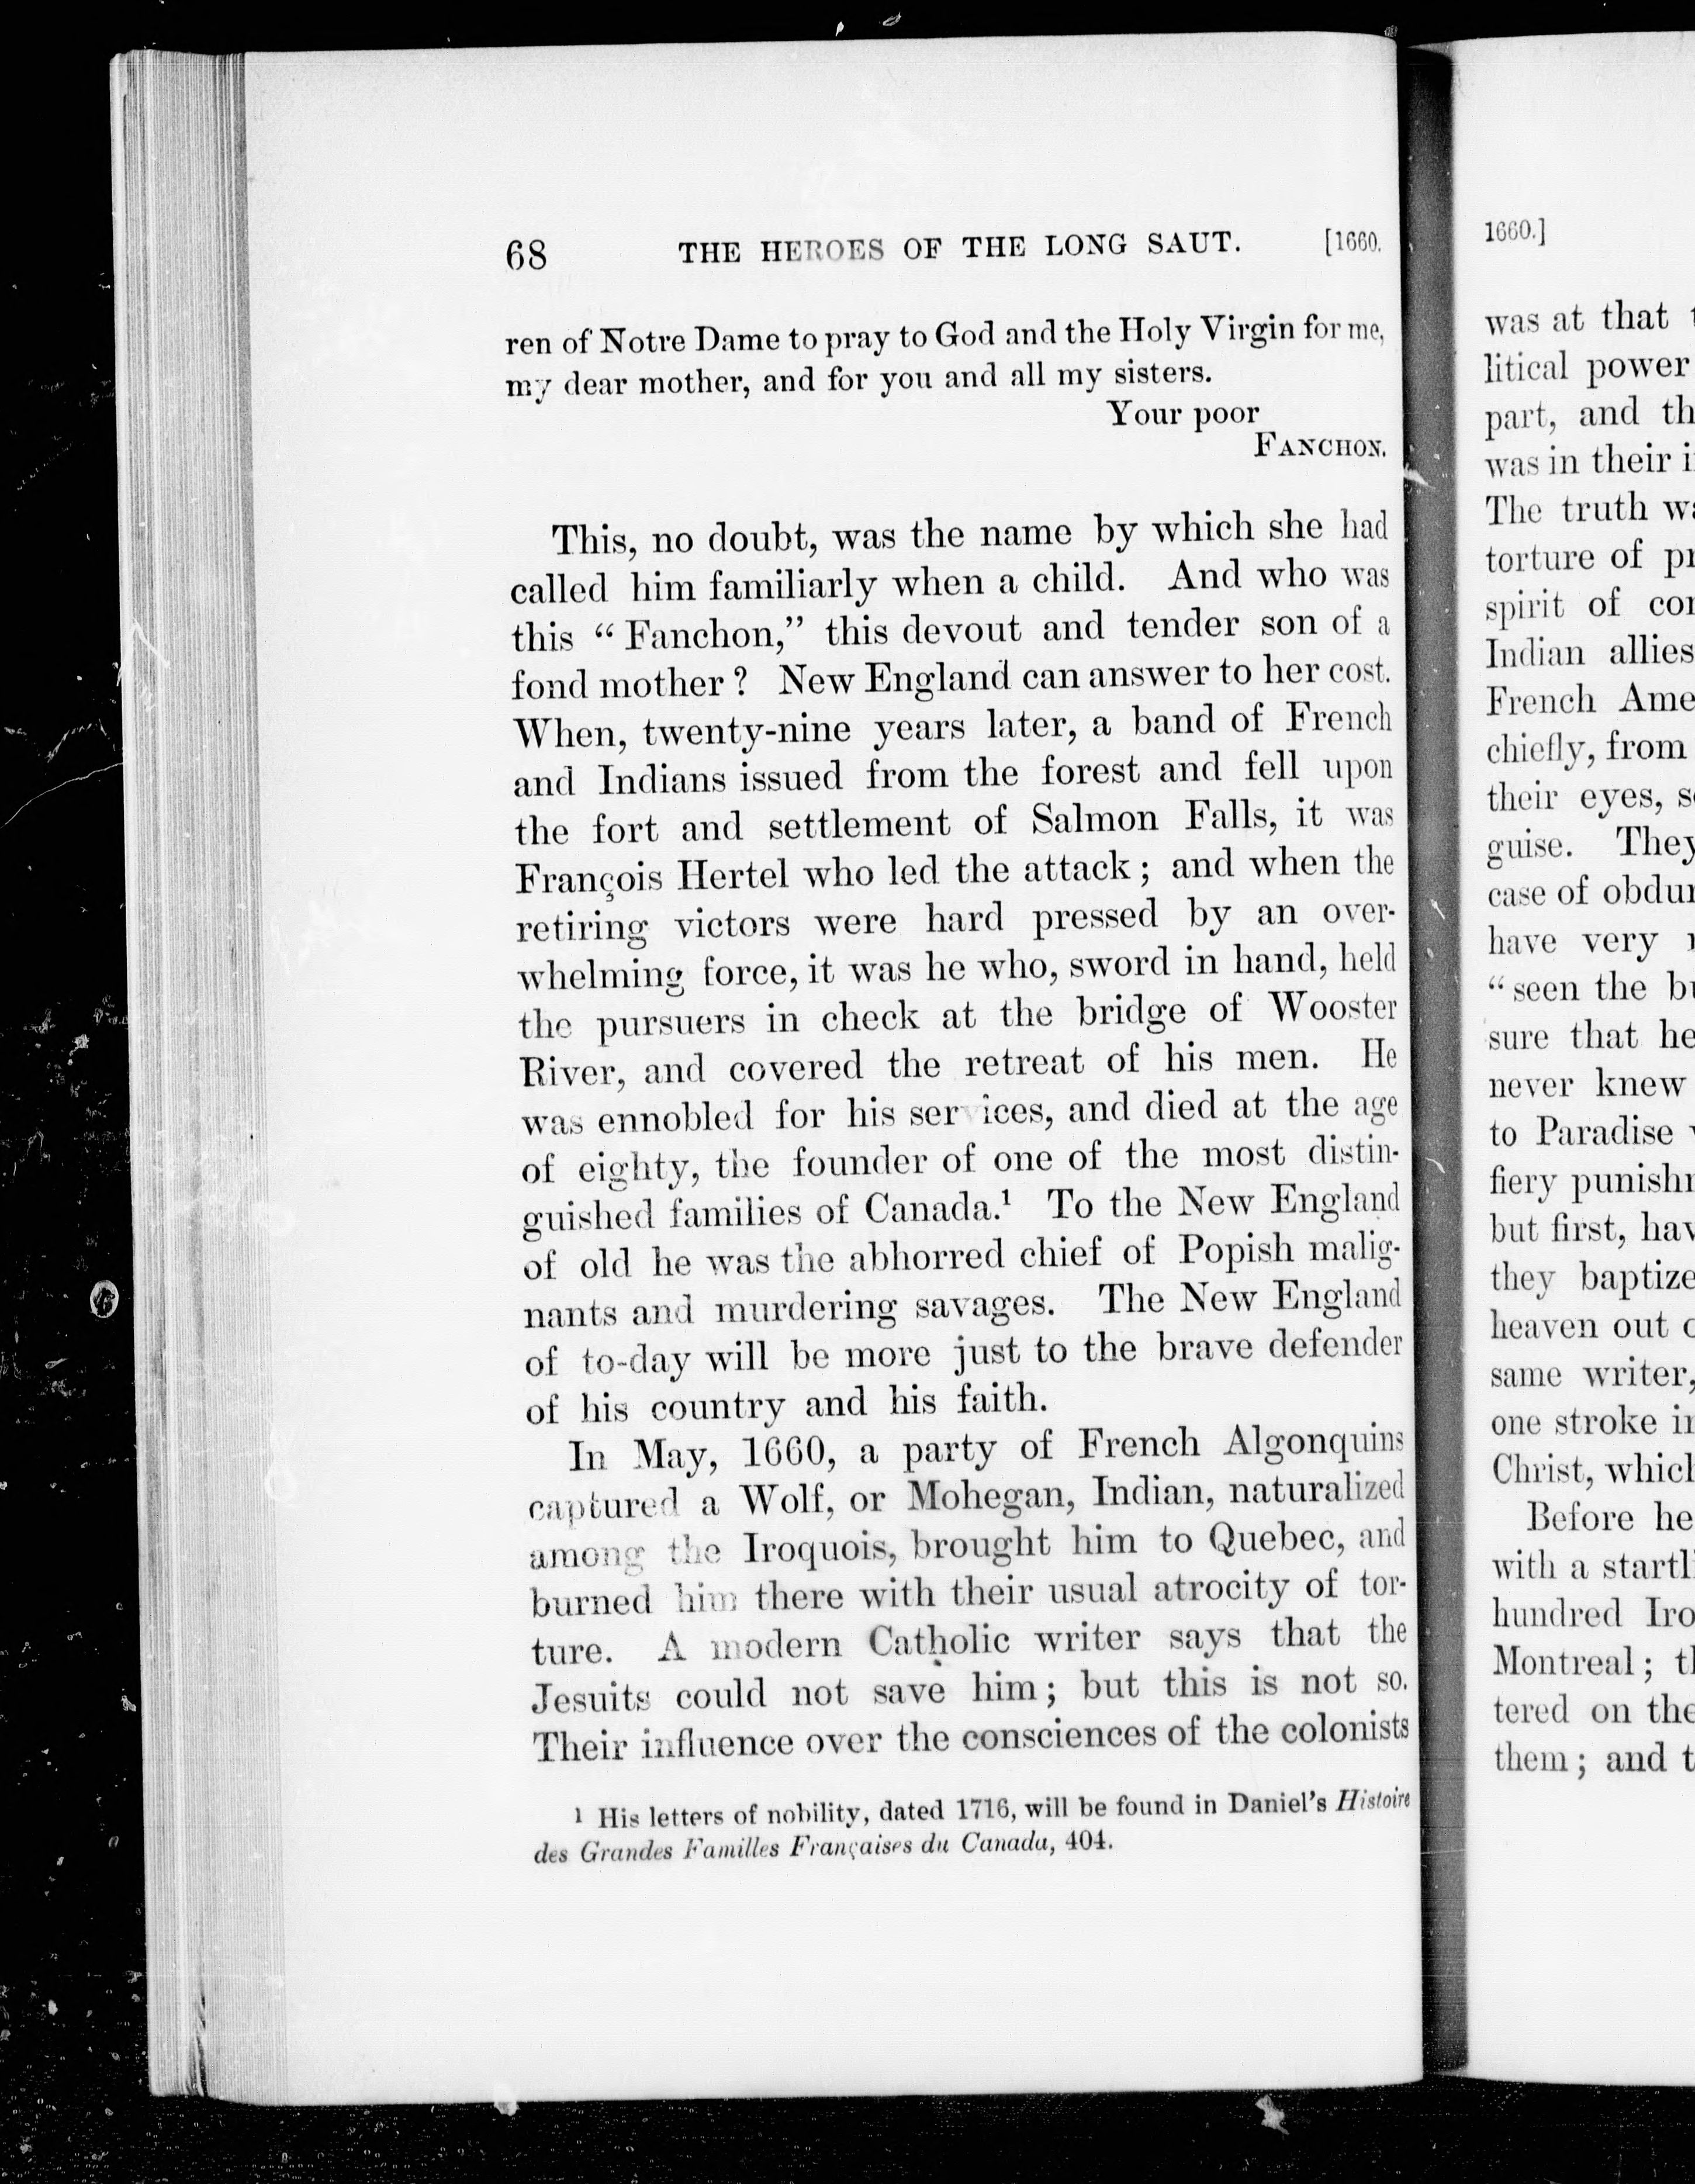 68 THE HEROES OF THE LONG SAUT. [1660.
ren of Notre Dame to pray to God and the Holy Virgin for me,
my dear mother, and for you and all my sisters.
Your poor
FANCHON.
This, no doubt, was the name by which she had
called him familiarly when a child. And who was
this “Fanchon,” this devout and tender son of a
fond mother? New England can answer to her cost.
When, twenty-nine years later, a band of French
and Indians issued from the forest and fell upon
the fort and settlement of Salmon Falls, it was
François Hertel who led the attack; and when the
retiring victors were hard pressed by an over-
whelming force, it was he who, sword in hand, held
the pursuers in check at the bridge of Wooster
River, and covered the retreat of his men. He
was ennobled for his services, and died at the age
of eighty, the founder of one of the most distin-
guished families of Canada.¹ To the New England
of old he was the abhorred chief of Popish malig-
nants and murdering savages. The New England
of to-day will be more just to the brave defender
of his country and his faith.
In May, 1660, a party of French Algonquins
captured a Wolf, or Mohegan, Indian, naturalized
among the Iroquois, brought him to Quebec, and
burned him there with their usual atrocity of tor-
ture. A modern Catholic writer says that the
Jesuits could not save him; but this is not so.
Their influence over the consciences of the colonists
¹ His letters of nobility, dated 1716, will be found in Daniel's Histoire
des Grandes Familles Françaises du Canada, 404.
1660.]
was at that
litical power
part, and
was in their
The truth
torture of
spirit of
Indian allies
French
chiefly, from
their eyes,
guise. They
case of
have very
“seen the
sure that he
never knew
to Paradise
fiery
but first,
they
heaven out
same writer,
one stroke
Christ,
Before he
with a
hundred
Montreal;
tered on the
them; and